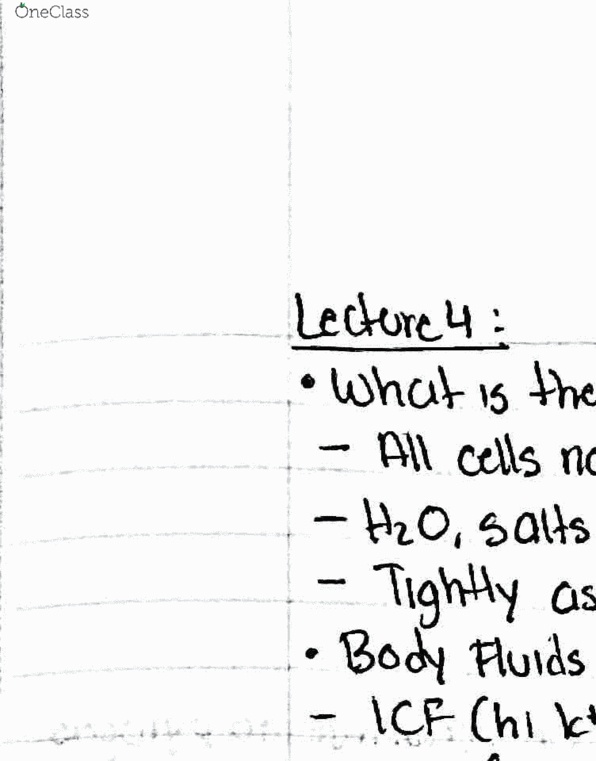 OneClass
Lecture 4 :
• What is the
– All cells
– H₂O, salts
– Tightly
• Body Fluids
– ICF (hi